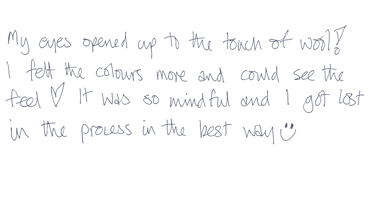 My eyes opened up to the touch of wool!
I felt the colours more and could see the
feel ♡ It was so mindful and I got lost
in the process in the best way :)